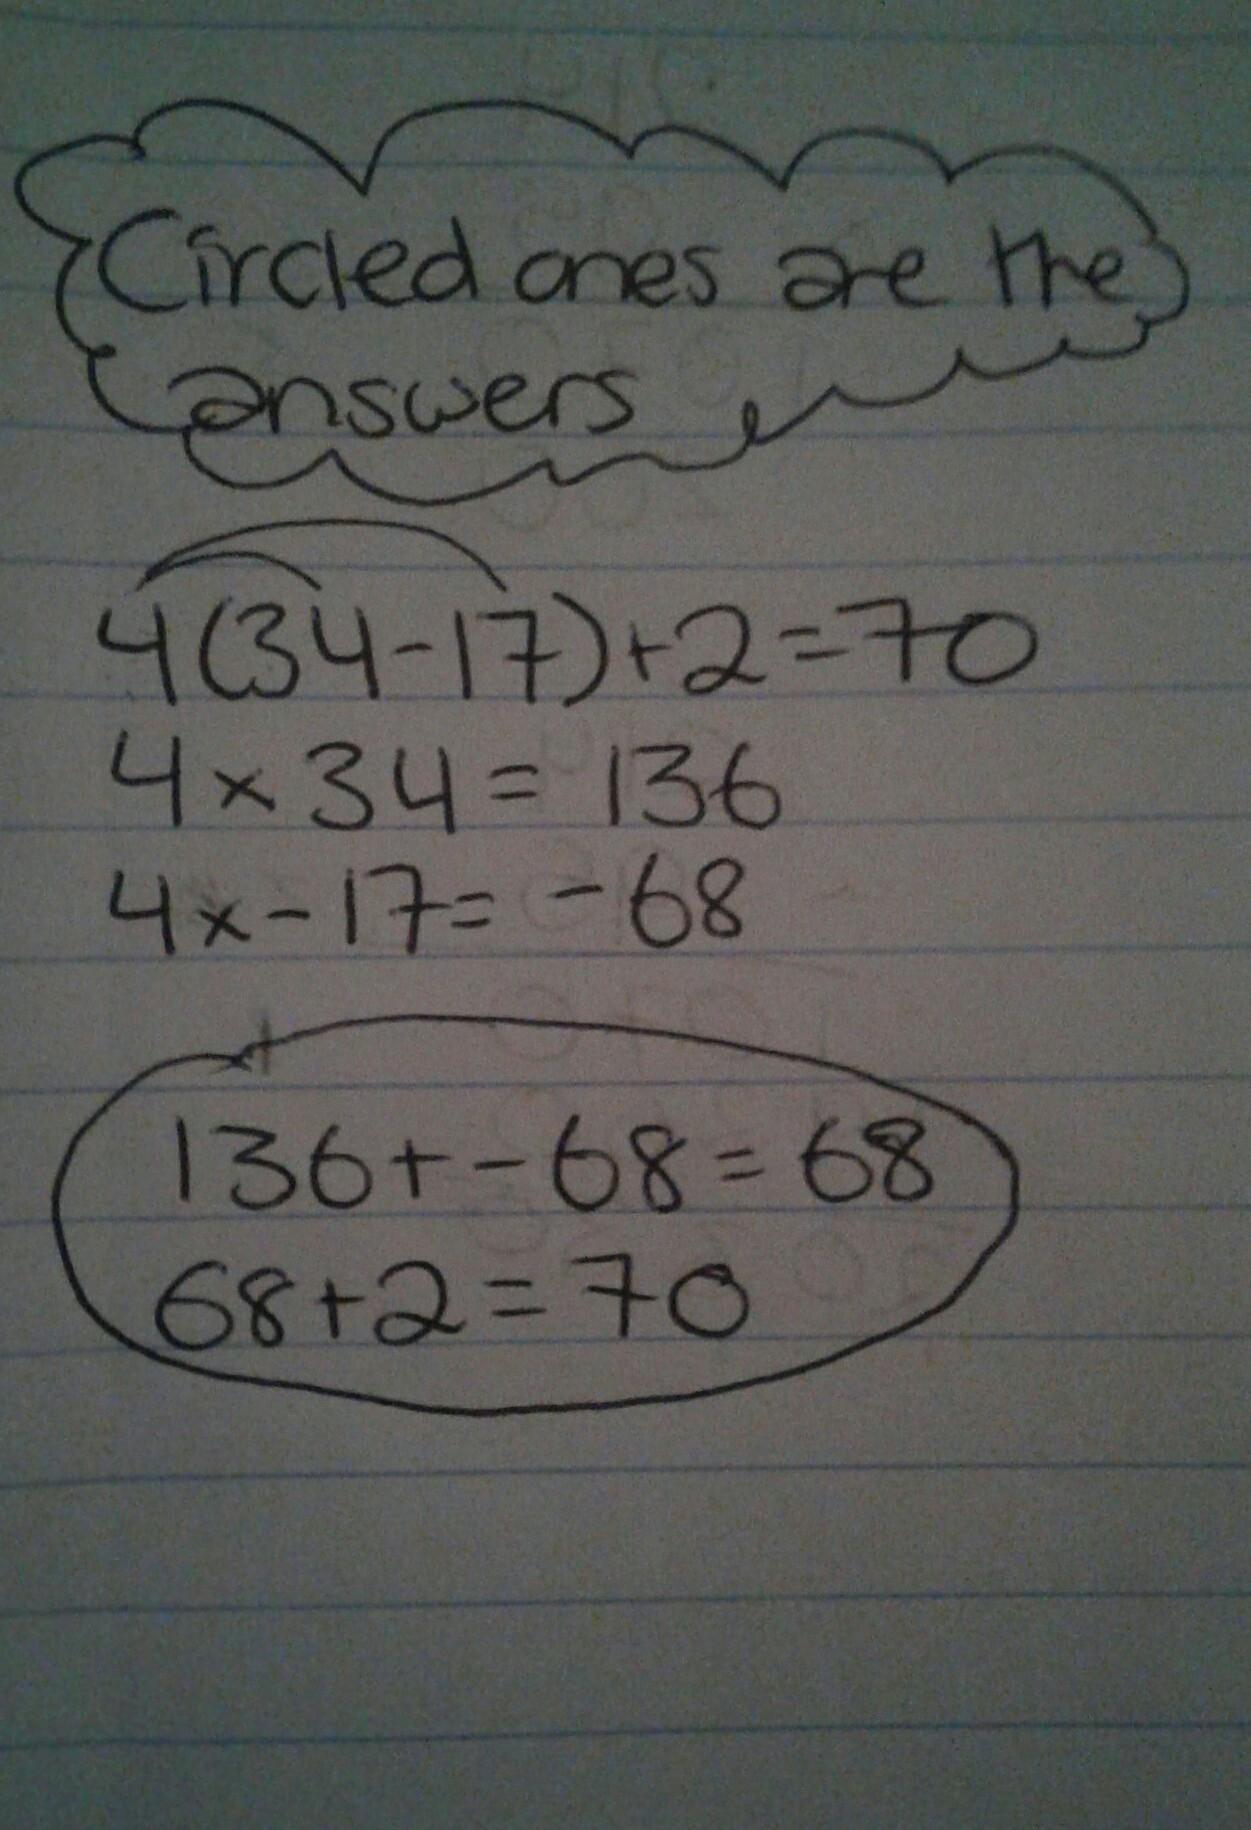 Circled ones are the
answers
4(34-17)+2=70
4x34=136
4x-17=-68
136+-68=68
68+2=70